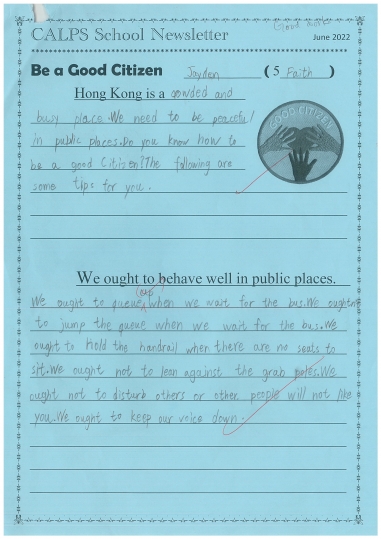 Good work
CALPS School Newsletter
June 2022
Be a Good Citizen Jayden ( 5 Faith )
Hong Kong is a crowded and
busy place. We need to be peaceful
in public places. Do you know how to
be a good Citizen? The following are
some tips for you.
GOOD CITIZEN
We ought to behave well in public places.
up
We ought to queue when we wait for the bus. We ought not
to jump the queue when we wait for the bus. We
ought to hold the handrail when there are no seats to
sit. We ought not to lean against the grab poles. We
ought not to disturb others or other people will not like
you. We ought to keep our voice down.